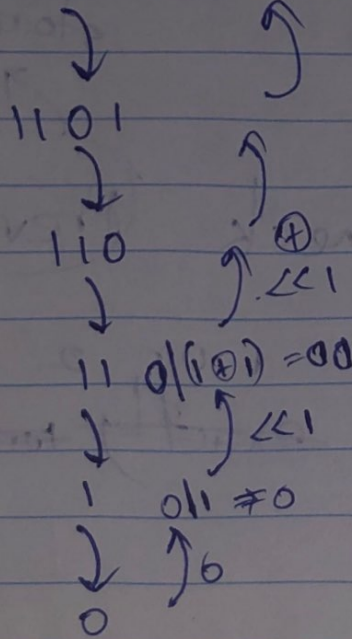 1101
110 ⊕
<<1
11 0|(1⊕1) = 00
<<1
1 0|1 ≠ 0
0